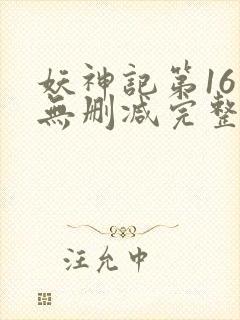 妖神記第16
無刪減完整
汪允中